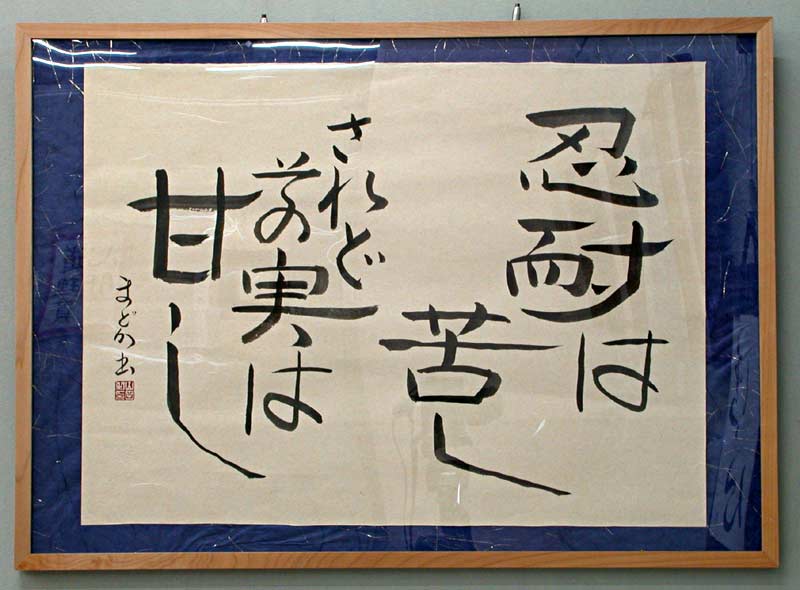 忍耐は
苦し
されど
その実は
甘し
まどか書